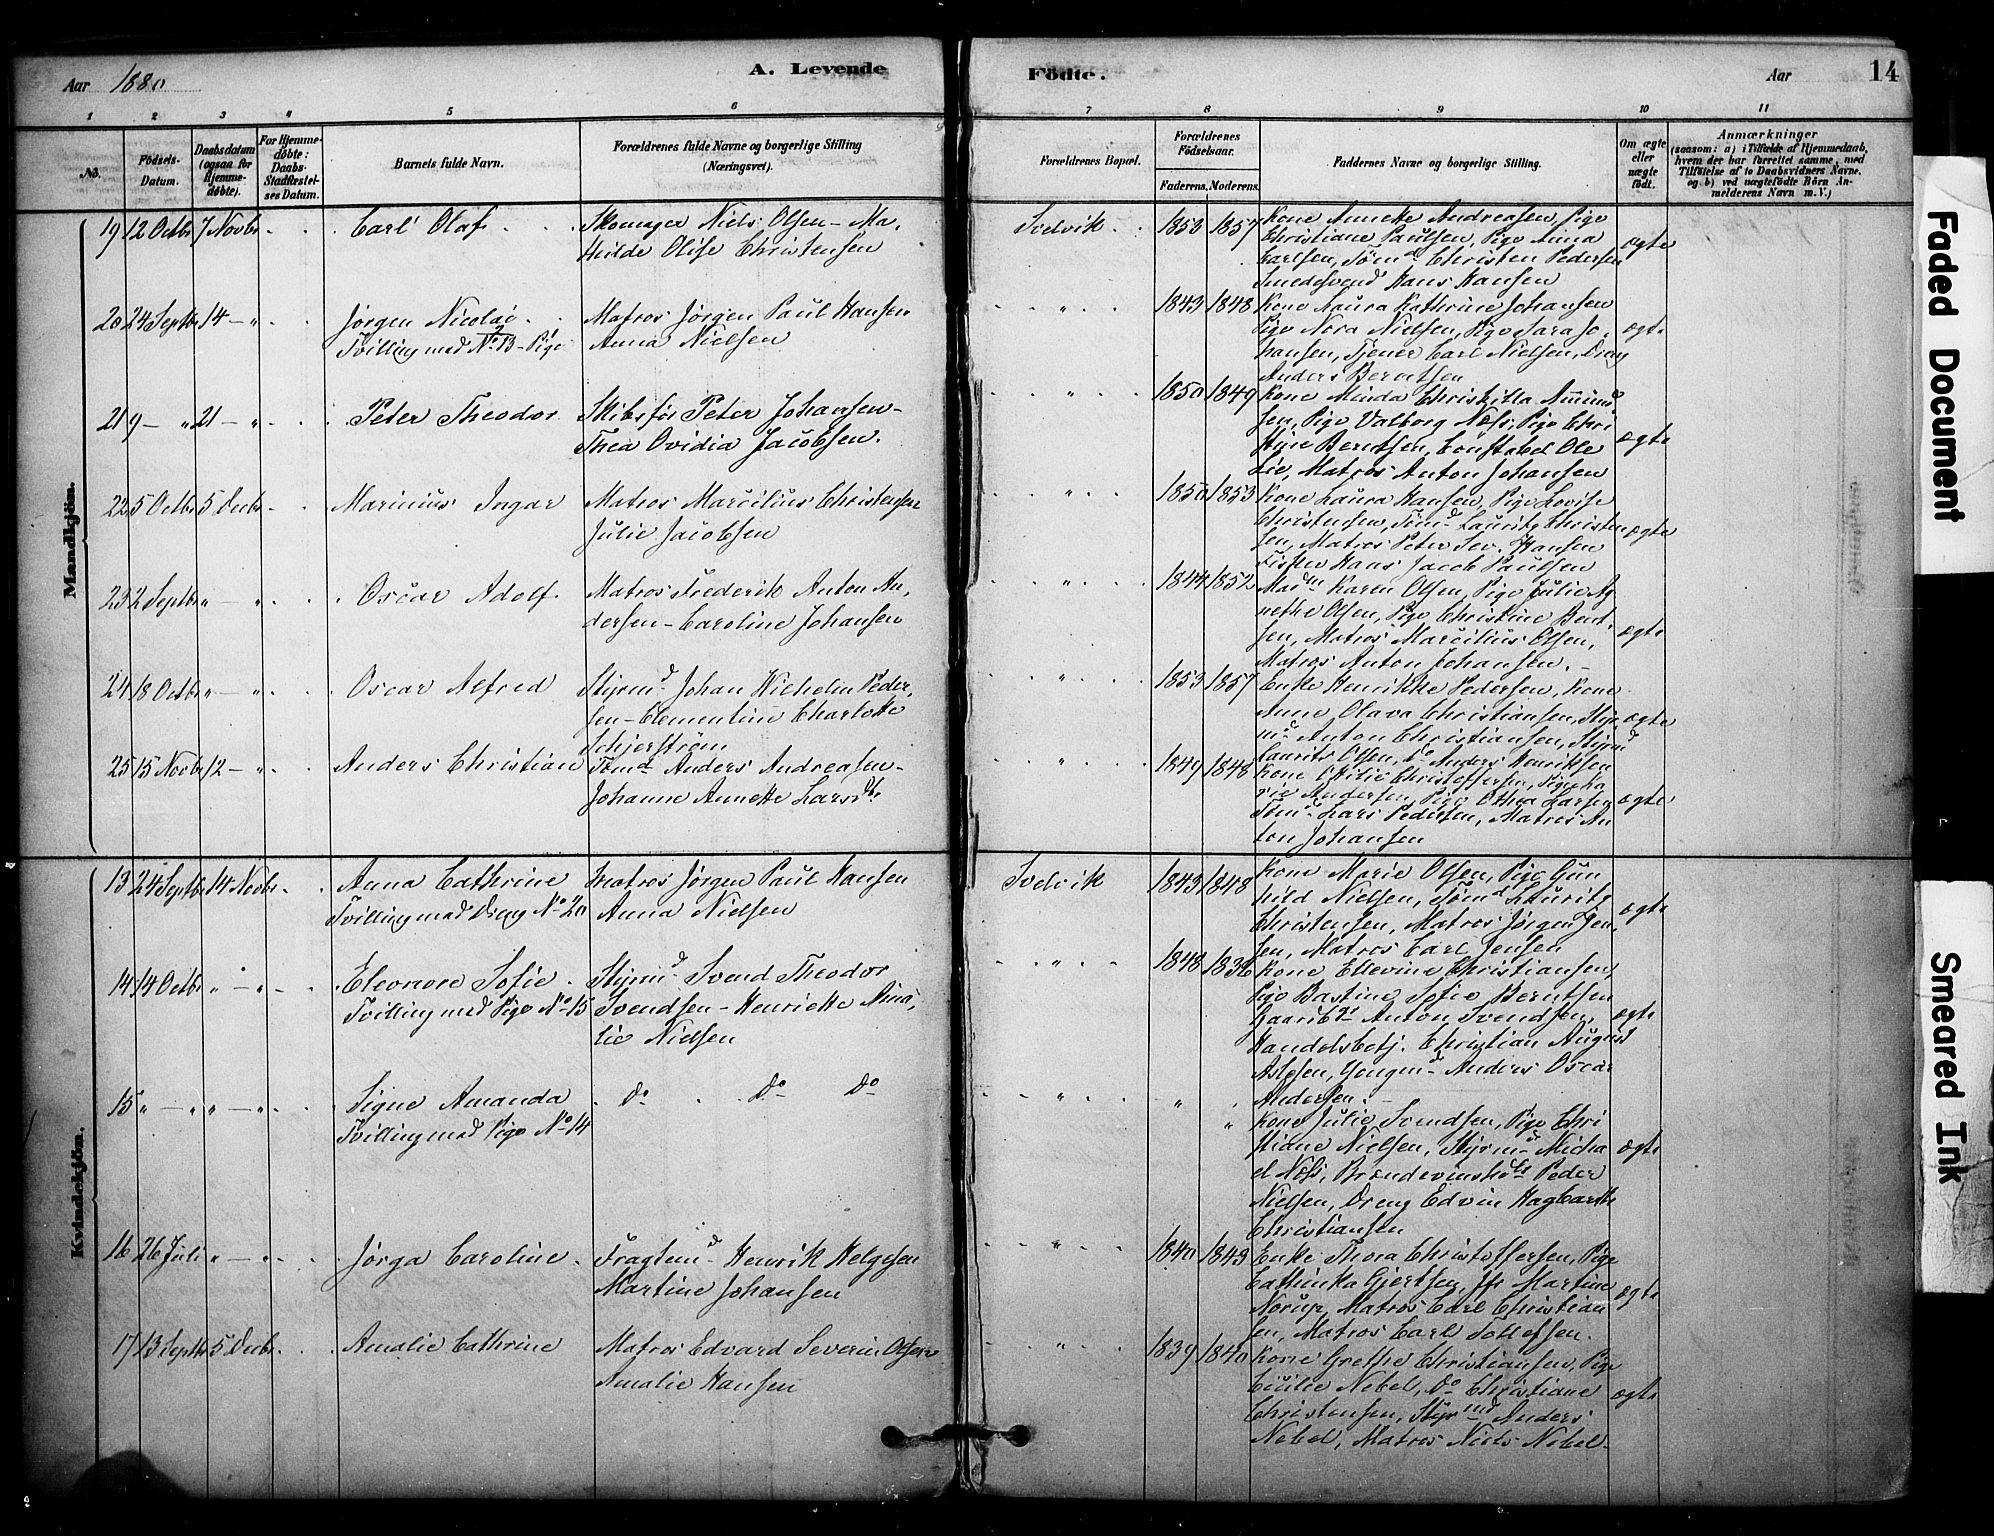 Aar 1880
A. Levende
Födte.
Aar
14
1 2 3 4 5 6 7 8 9 10 11
No.
Födsels-Datum.
Daabsdatum (ogsaa for Hjemme-døbte).
For Hjemme-døbte: Daabs-Stadfæstelses Datum.
Barnets fulde Navn.
Forældrenes fulde Navne og borgerlige Stilling (Næringsvei).
Forældrenes Bopæl.
Forældrenes Födselsaar.
Faderens. Moderens.
Faddernes Navne og borgerlige Stilling.
Om ægte eller uægte födt.
Anmærkninger
(saasom: a) i Tilfælde af Hjemmedaab, hvem der har forrettet samme, med Tilföielse af to Daabsvidners Navne, og b) ved uægtefödte Börn Anmelderens Navn m. V.)
Mandkjön.
19 12 Octbr 7 Novbr Carl Olaf
Skomager Niels Olsen – Ma,
thilde Olise Christensen
Svelvik 1853 1857
Kone Annette Andreasen, Pige
Christiane Paulsen, Pige Anna
Carlsen, Tømd Christen Pedersen
Smedesvend Hans Hansen
ægte
20 24 Septbr 14 – „ Jørgen Nicolai
Tvilling med No 13 – Pige
Matros Jørgen Paul Hansen
Anna Nielsen
„ 1843 1848
Kone Laura Kathrine Johansen
Pige Nora Nielsen, Pige Sara Jo,
hansen, Tjener Carl Nielsen, Dreng
Anders Berntsen
ægte
21 9 – „ 21 – „ Peter Theodor
Skibsfør Peter Johansen –
Thea Ovidia Jacobsen.
„ 1850 1849
Kone Minda Christella Amund
sen, Pige Valborg Næss, Pige Chri
stine Berntsen, Constabel Ole
Lie, Matros Anton Johansen
ægte
22 5 Octbr 5 Decbr Marinius Ingar
Matros Marcilius Christensen
Julie Jacobsen
„ 1850 1853
Kone Laura Hansen, Pige Lovise
Christensen, Tømd Lauritz Christen
sen, Matros Peter Sev. Hansen
Fisker Hans Jacob Paulsen
ægte
23 2 Septbr „ – „ Oscar Adolf
Matros Frederik Anton An,
dersen – Caroline Johansen
„ 1844 1852
Madm Karen Olsen, Pige Julie Ag
nethe Olsen, Pige Christine Bent
sen, Matros Marcilius Olsen,
Matros Anton Johansen. –
ægte
24 18 Octbr „ – „ Oscar Alfred
Styrmd Johan Wilhelm Peder,
sen – Clementine Charlotte
Schjerström
„ 1853 1857
Enke Henrikke Pedersen, Kone
Anne Olava Christiansen, Styr
md Anton Christiansen, Styrmd
Laurits Olsen, Do Anders Henriksen
ægte
25 15 Novbr 12 – „ Anders Christian
Tømd Anders Andreasen –
Johanne Annette Larsdtr
„ 1849 1848
Kone Otilie Christoffersen, Pige Ma
rie Andersen, Pige Othea Larsen
Tømd Lars Pedersen, Matros An
ton Johansen
ægte
Kvindekjön.
13 24 Septbr 14 Novbr Anna Cathrine
Tvilling med Dreng No 20
Matros Jørgen Paul Hansen
Anna Nielsen
Svelvik 1843 1848
Kone Marie Olsen, Pige Gun
hild Nielsen, Tømd Lauritz
Christensen, Matros Jørgen Jen,
sen, Matros Carl Jensen
ægte
14 14 Octbr „ – „ Eleonore Sofie
Tvilling med Pige No 15
Styrmd Svend Theodor
Svendsen – Henriette Ama,
lie Nielsen
„ 1848 1836
Kone Ellevine Christiansen,
Pige Bastine Sofie Berntsen
Gaardbr Anton Svendsen,
Handelsbetj. Christian August
Aslesen, Gangmd Anders Oscar
Andersen. –
ægte
15 „ – „ „ – „ Signe Amanda
Tvilling med Pige No 14
Do Do Do
„ „ „
Kone Julie Svendsen, Pige Chri
stiane Nielsen, Styrmd Micha
el Næss, Peder
Nielsen, Dreng Edvin Hagbarth
Christiansen
ægte
16 26 Juli „ – „ Jørga Caroline
Fragtemd Henrik Helgesen
Martine Johansen
„ 1840 1843
Enke Thora Christoffersen, Pige
Cathinka Gjertsen, Jfr Martine
Norup, Matros Carl Christian
sen, Matros Carl Tollefsen.
ægte
17 13 Septbr 5 Decbr Amalie Cathrine
Matros Edvard Severin Olsen
Amalie Hansen
„ 1839 1840
Kone Grethe Christiansen, Pige
Cicilie Nebel, Do Christiane
Christensen, Styrmd Anders
Nebel, Matros Niels Nebel.
ægte
Faded Document
Smeared Ink